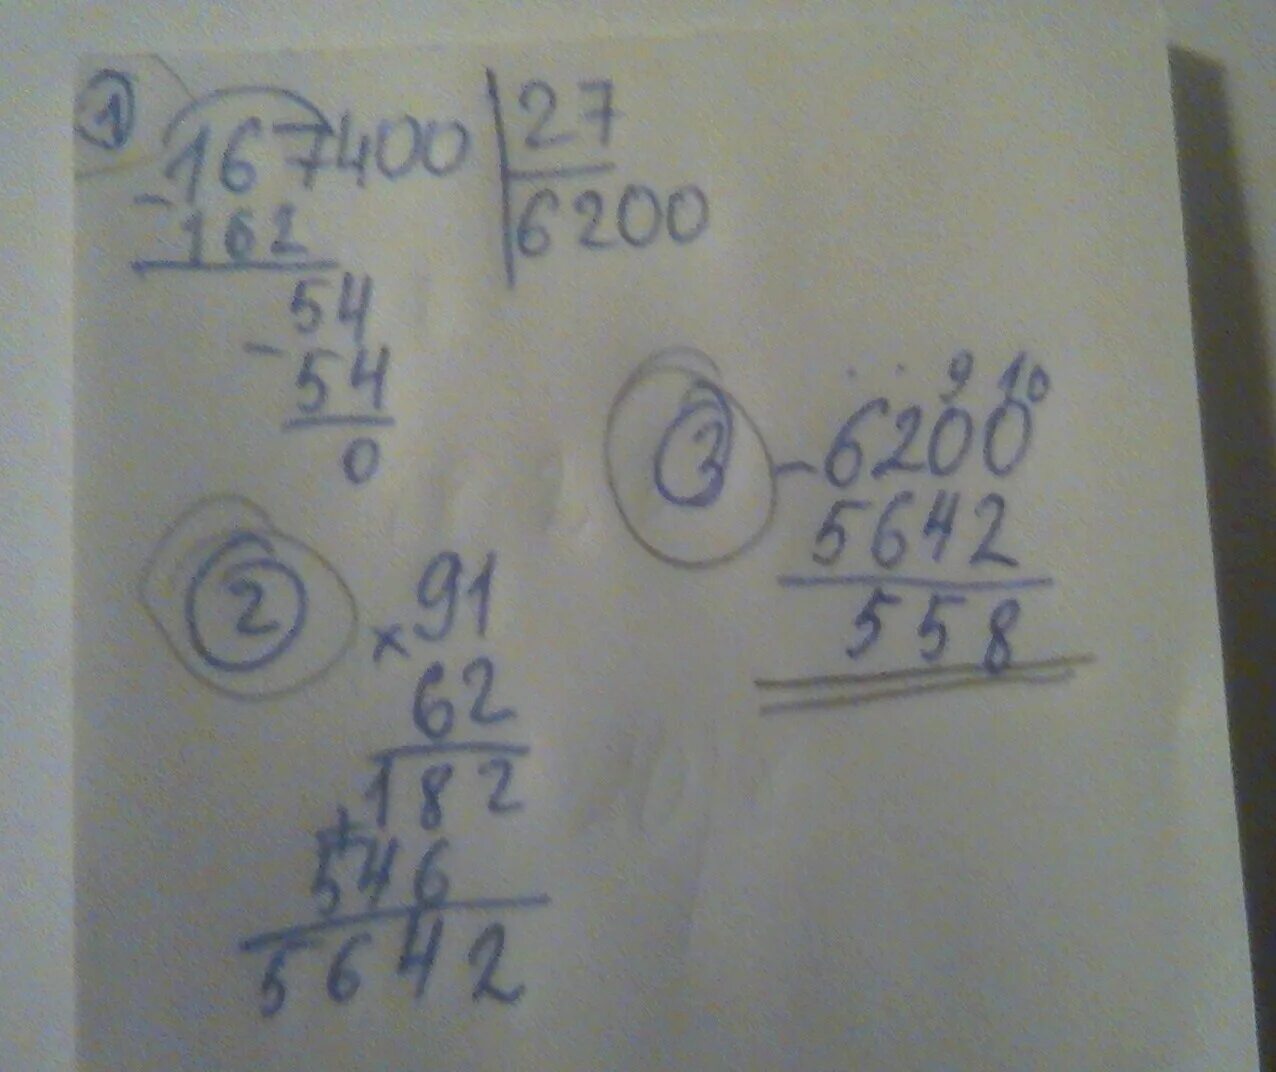 1
- 167400 | 27
162 | 6200
54
- 54
0
2
× 91
62
182
+ 546
5642
3
. . 9 10
- 6200
5642
558